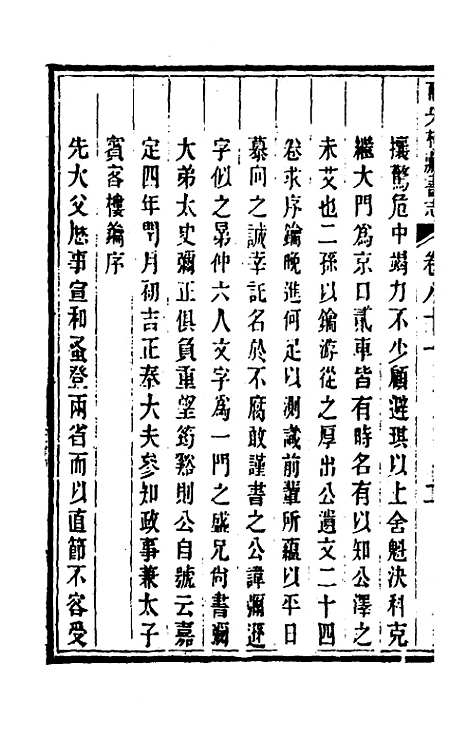 藏書志 卷八十
攘驚危中竭力不少顧避琪以上舍魁決科克
繼大門爲京口貳車皆有時名有以知公澤之
未艾也二孫以鑰游從之厚出公遺文二十四
卷求序鑰晚進何足以測識前輩所蘊以平日
慕向之誠幸託名於不腐敢謹書之公諱彌遜
字似之昴仲六人文字爲一門之盛兄尚書彌
大弟太史彌正俱負重望筠谿則公自號云嘉
定四年閏月初吉正奉大夫參知政事兼太子
賓客樓鑰序
先大父歷事宣和蚤登兩省而以直節不容受